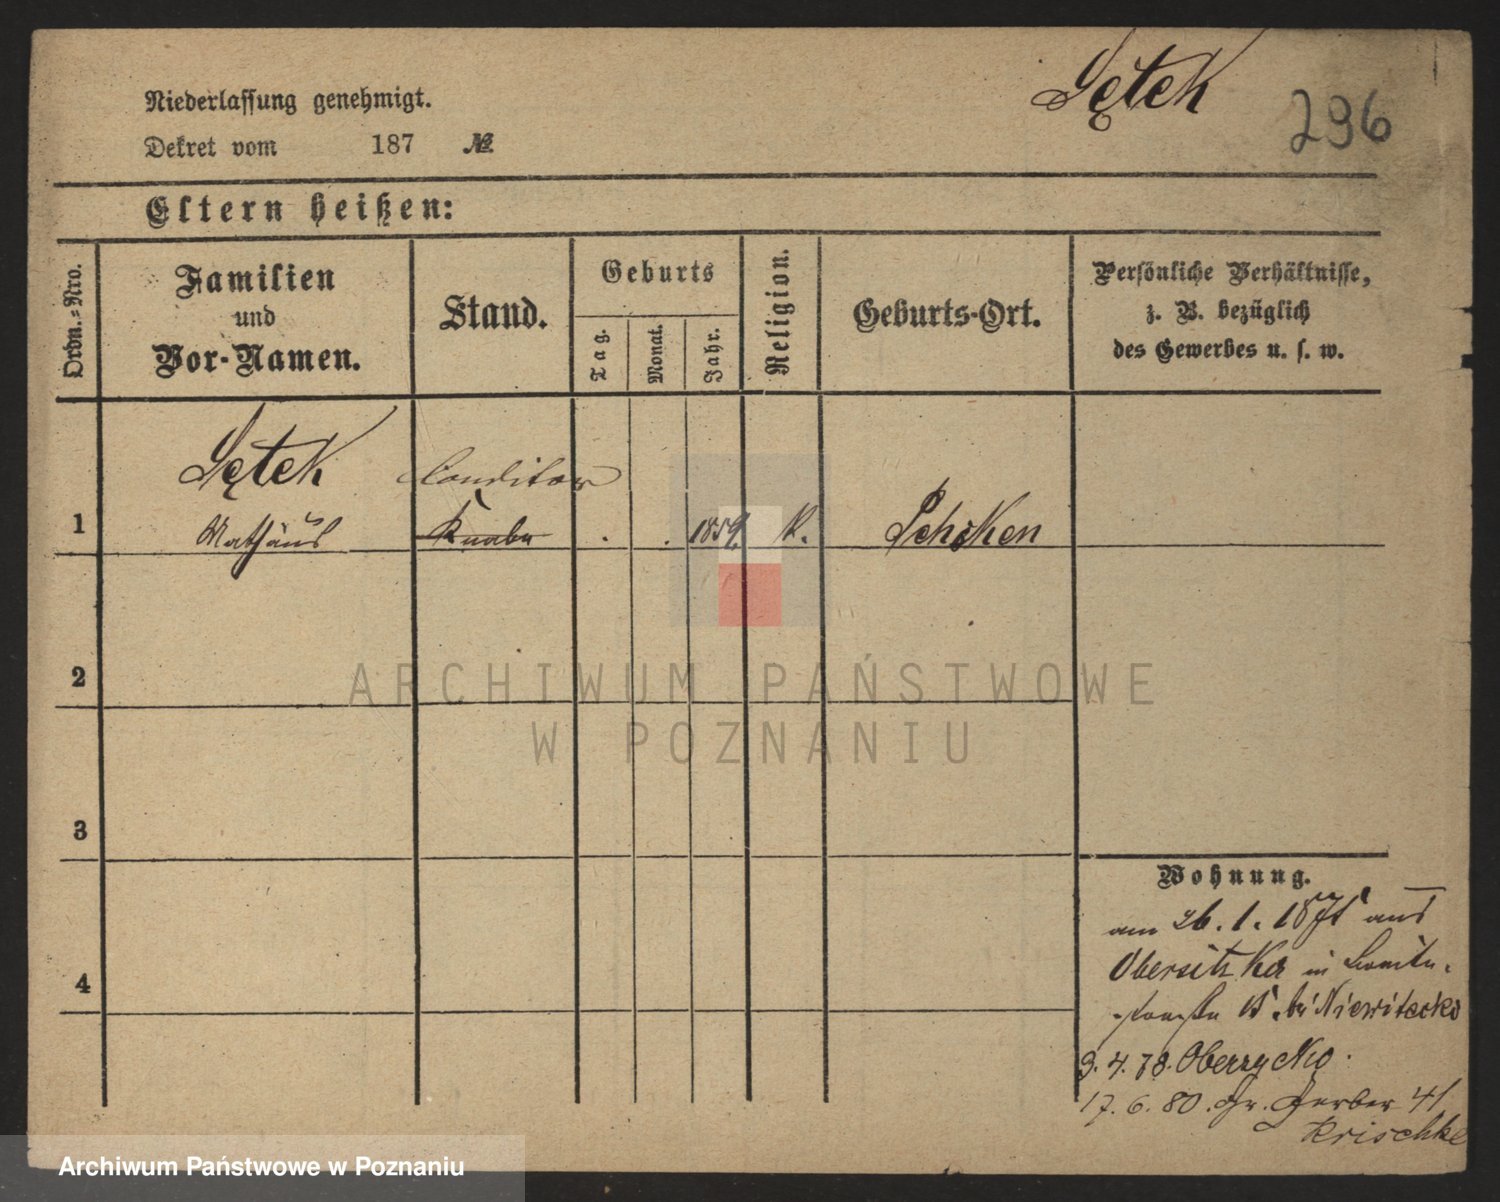 Sętek
296
Niederlassung genehmigt.
Dekret vom 187 №
Eltern heißen:
Ordn.-Nro.
Familien
und
Vor-Namen.
Stand.
Geburts
Tag.
Monat.
Jahr.
Religion.
Geburts-Ort.
Persönliche Verhältnisse,
z. B. bezüglich
des Gewerbes u. s. w.
Sętek Conditor
1 Mathäus Knabe . . 1859 K. Schoken
2
3
4
Wohnung.
am 26. 1. 1875 aus
Obersitzko in
15 bei Niewitecki
9. 4. 78. Obersycko.
17. 6. 80. Gr. Gerber 41
Krischke
ARCHIWUM PAŃSTWOWE
W POZNANIU
Archiwum Państwowe w Poznaniu